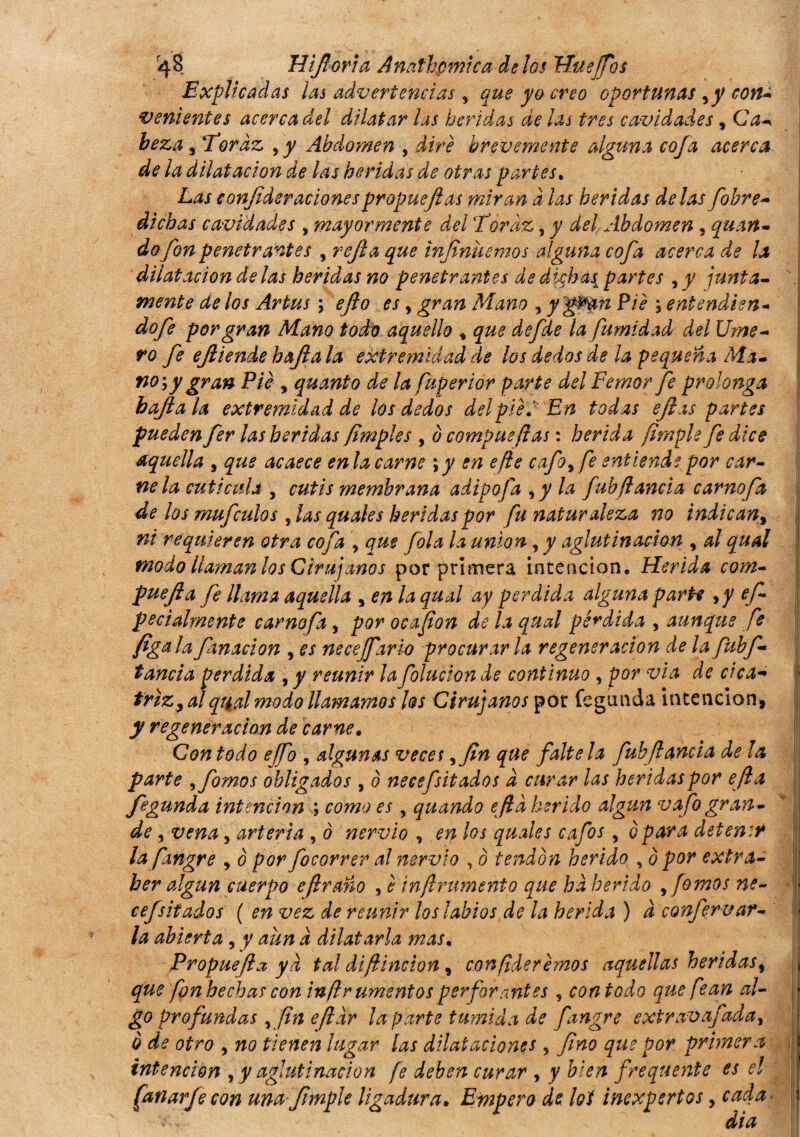 48 Hiſtoria Anathomica de los Hueſſos
Explicadas las advertencias, que yo creo oportunas, y con-
venientes acerca del dilatar las heridas de las tres cavidades, Ca-
beza, Toràz, y Abdomen, dirè brevemente alguna coſa acerca
de la dilatacion de las heridas de otras partes.
Las conſideraciones propueſtas miran à las heridas de las ſobre-
dichas cavidades, mayormente del Toràz, y del Abdomen, quan-
do ſon penetrantes, reſta que inſinüemos alguna coſa acerca de la
dilatacion de las heridas no penetrantes de dichas partes, y junta-
mente de los Artus; eſto es, gran Mano, y gran Piè; entendien-
doſe por gran Mano todo aquello, que deſde la ſumidad del Ume-
ro ſe eſtiende haſta la extremidad de los dedos de la pequeña Ma-
no; y gran Piè, quanto de la ſuperior parte del Femor ſe prolonga
haſta la extremidad de los dedos del piè. En todas eſtas partes
pueden ſer las heridas ſimples, ò compueſtas: herida ſimple ſe dice
aquella, que acaece en la carne; y en eſte caſo, ſe entiende por car-
ne la cuticula, cutis membrana adipoſa, y la ſubſtancia carnoſa
de los muſculos, las quales heridas por ſu naturaleza no indican,
ni requieren otra coſa, que ſola la union, y aglutinacion, al qual
modo llaman los Cirujanos por primera intencion. Herida com-
pueſta ſe llama aquella, en la qual ay perdida alguna parte, y eſ-
pecialmente carnoſa, por ocaſion de la qual pérdida, aunque ſe
ſiga la ſanacion, es neceſſario procurar la regeneracion de la ſubſ-
tancia perdida, y reunir la ſolucion de continuo, por via de cica-
triz, al qual modo llamamos los Cirujanos por ſegunda intencion,
y regeneracion de carne.
Con todo eſſo, algunas veces, ſin que falte la ſubſtancia de la
parte, ſomos obligados, ò neceſsitados à curar las heridas por eſta
ſegunda intencion; como es, quando eſtà herido algun vaſo gran-
de, vena, arteria, ò nervio, en los quales caſos, ò para detener
la ſangre, ò por ſocorrer al nervio, ò tendòn herido, ò por extra-
her algun cuerpo eſtraño, è inſtrumento que hà herido, ſomos ne-
ceſsitados ( en vez de reunir los labios de la herida ) à conſervar-
la abierta, y aùn à dilatarla mas.
Propueſta yà tal diſtincion, conſiderèmos aquellas heridas,
que ſon hechas con inſtrumentos perforantes, con todo que ſean al-
go profundas, ſin eſtàr la parte tumida de ſangre extravaſada,
ò de otro, no tienen lugar las dilataciones, ſino que por primera
intencion, y aglutinacion ſe deben curar, y bien frequente es el
ſanarſe con una ſimple ligadura. Empero de los inexpertos, cada
dia